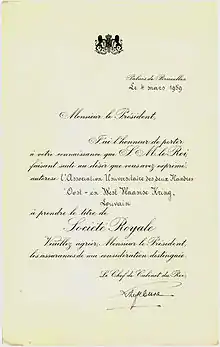 Palais de Bruxelles
Le 4 mars 1959
Monsieur le Président,
J'ai l'honneur de porter
à votre connaissance que S. M. le Roi,
faisant suite au désir que vous avez exprimé,
autorise L'Association Universitaire des deux Flandres
Oost- en West Vlaamse Kring,
Louvain
à prendre le titre de
Société Royale
Veuillez agréer, Monsieur le Président,
les assurances de ma considération distinguée.
Le Chef de Cabinet du Roi,